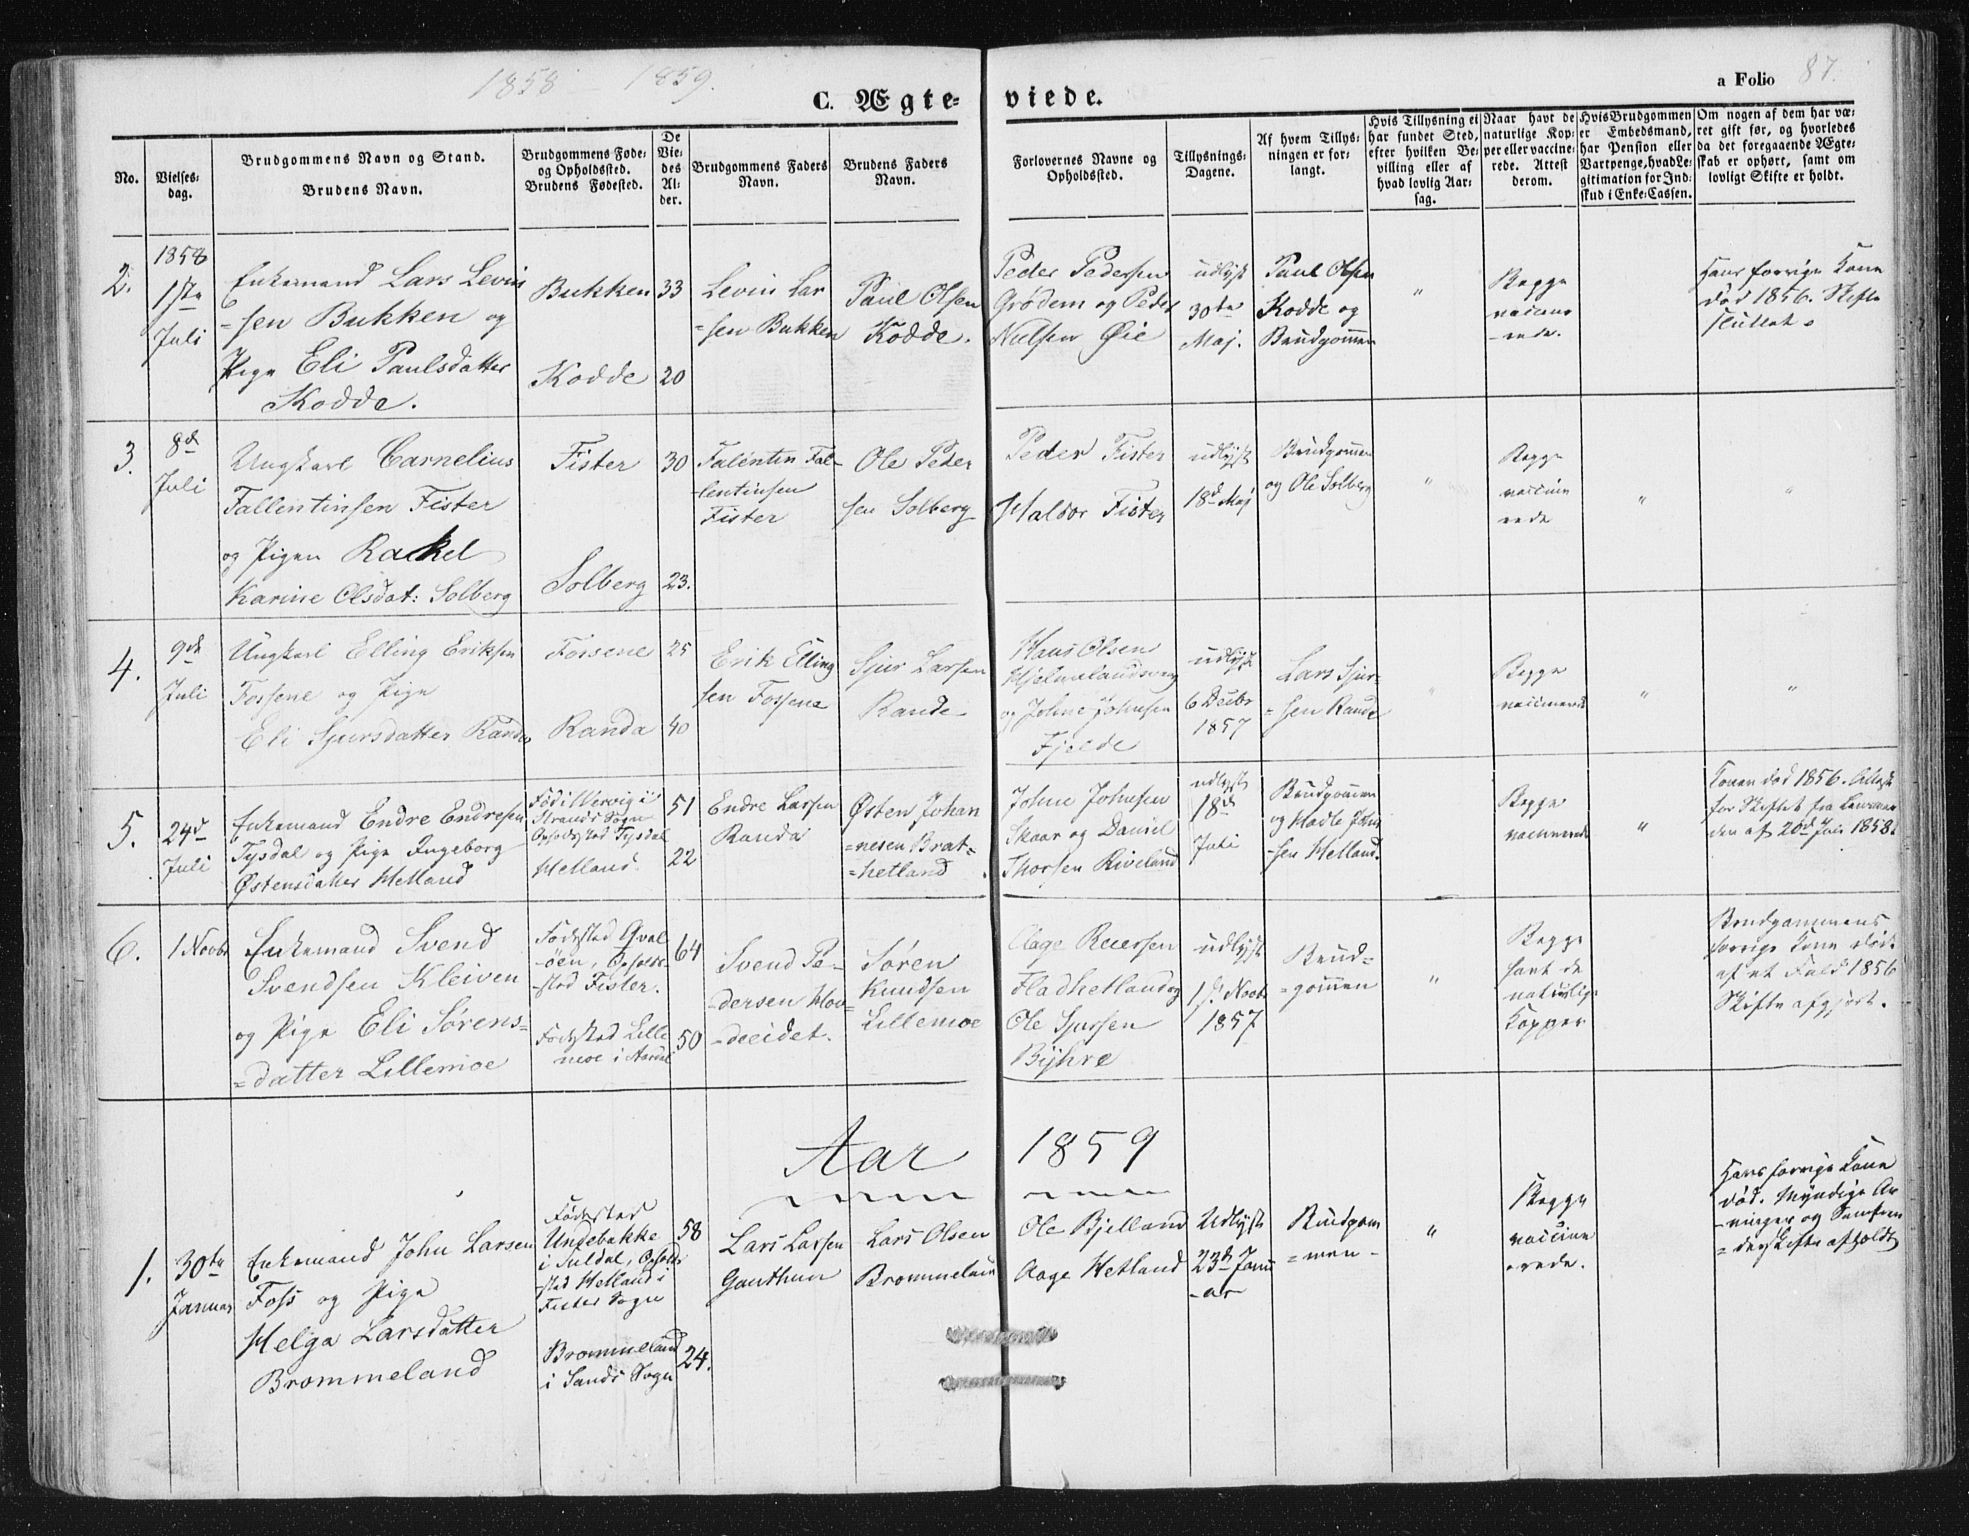 1858 — 1859.
C. Ægte- viede.
a Folio 87.
No.
Vielses-
dag.
Brudgommens Navn og Stand.
Brudens Navn.
Brudgommens Føde-
og Opholdssted.
Brudens Fødested.
De
Vie-
des
Al-
der.
Brudgommens Faders
Navn.
Brudens Faders
Navn.
Forlovernes Navne og
Opholdssted.
Tillysnings-
Dagene.
Af hvem Tillys-
ningen er for-
langt.
Hvis Tillysning ei
har fundet Sted,
efter hvilken Be-
villing eller af
hvad lovlig Aar-
sag.
Naar havt de
naturlige Kop-
per eller vaccine-
rede. Attest
derom.
Hvis Brudgommen
er Embedsmand,
har Pension eller
Vartpenge, hvad Le-
gitimation for Ind-
skud i Enke-Cassen.
Om nogen af dem har væ-
ret gift før, og hvorledes
da det foregaaende Ægte-
skab er ophørt, samt om
lovligt Skifte er holdt.
2.
1858
1ste
Juli
Enkemand Lars Levin
=sen Bukken og
Pige Eli Paulsdatter
Kodde.
Bukken
Kodde
33
20
Levin Lar
=sen Bukken
Paul Olsen
Kodde.
Peder Pedersen
Grødem og Peder
Nielsen Øie
udlyst
30te
Maj.
Paul Olsen
Kodde og
Brudgommen
"
Begge
vaccine
-rede.
Hans forrige Kone
død 1856. Skifte
sluttet.
3.
8de
Juli
Ungkarl Carnelius
Fallentinsen Fister
og Pigen Rachel
Karine Olsdat: Solberg
Fister
Solberg
30
23.
Falentin Fal-
-lentinsen
Fister
Ole Peder
sen Solberg
Peder Fister
Haldor Fister
udlyst
18de Maj
Brudgommen
og Ole Solberg
"
Begge
vaccine
rede
"
"
4.
9de
Juli
Ungkarl Elling Eriksen
Fossene og Pige
Eli Sjursdatter Rande
Fossene
Randa
25
40
Erik Elling
sen Fossene
Sjur Larsen
Rande
Hans Olsen
Hjelmelandsvog
og Johne Johnsen
Fjelde
udlyst
6 Decbr
1857
Lars Sjur-
=sen Rande
"
Begge
vaccinerede
"
"
5.
24de
Juli
Enkemand Endre Endresen
Tysdal og Pige Ingeborg
Østensdatter Hetland
Fød i Vervig i
Strands Sogn
Opholdsted Tysdal
Hetland.
51
22
Endre Larsen
Randa
Østen Johan
=nesen Brat=
=hetland
Johne Johnsen
Skaar og Daniel
Thorsen Riveland
udlyst
18de
Juli
Brudgommen
og Hadle Johan
-sen Hetland.
Begge
vaccinerede
"
Konen død 1856. Attest
for Skiftet fra Lensman
den af 20de Juni 1858.
6.
1 Novbr
Enkemand Svend
Svendsen Kleiven
og Pige Eli Sørens=
=datter Lillemoe
Fødested Qval
-øen, Opholds-
-sted Fister.
Fødested Lille
moe i Aardal
64
50
Svend Pe-
-dersen Hov-
-deeidet.
Søren
Knudsen
Lillemoe
Aage Reiersen
Fladhetland og
Ole Sjursen
Byhre
udlyst
1ste Novbr
1857
Brud=
=gommen
"
Begge
havt de
naturlige
Kopper
Brudgommens
forrige Kone døde
af et Fald 1856
Skifte afgjort.
Aar 1859
1.
30te
Januar
Enkemand John Larsen
Foss og Pige
Helga Larsdatter
Brommeland
Fødested
Undebakke
i Suldal, Ophold
-sted Hetland i
Fister Sogn
Brommeland
i Sands Sogn
58
24.
Lars Larsen
Gauthun
Lars Olsen
Brommeland
Ole Bjelland
Aage Hetland
Udlyst
23de Janu
-ar
Brudgom
=men -
"
Begge
vaccine
-rede.
Hans forrige Kone
død. Myndige Ar
-vinger og Samfræn
=deskifte afholdt